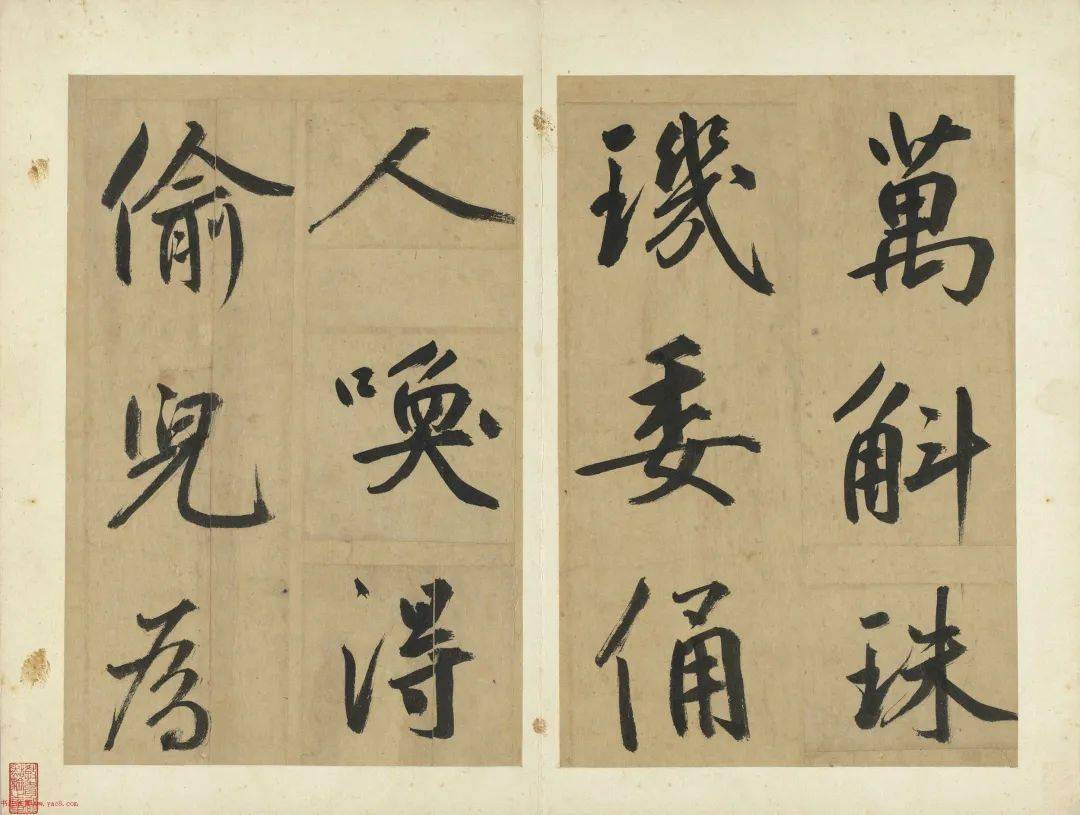 萬斛珠
璣委俑
人喚得
偷兒為
www.yac8.com